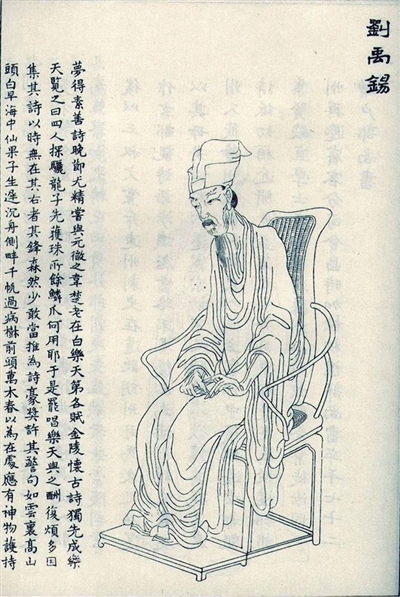 劉禹錫
夢得素善詩晚節尤精嘗與元微之韋楚老在白樂天第各賦金陵懷古詩獨先成樂
天覧之曰四人探驪龍子先獲珠所餘鱗爪何用耶于是罷唱樂天與之酬復頻多因
集其詩以時無在其右者其鋒森然少敢當推為詩豪獎許其警句如雲裏高山
頭白早海中仙果子生遲沉舟側畔千帆過病樹前頭萬木春以為在處應有神物護持